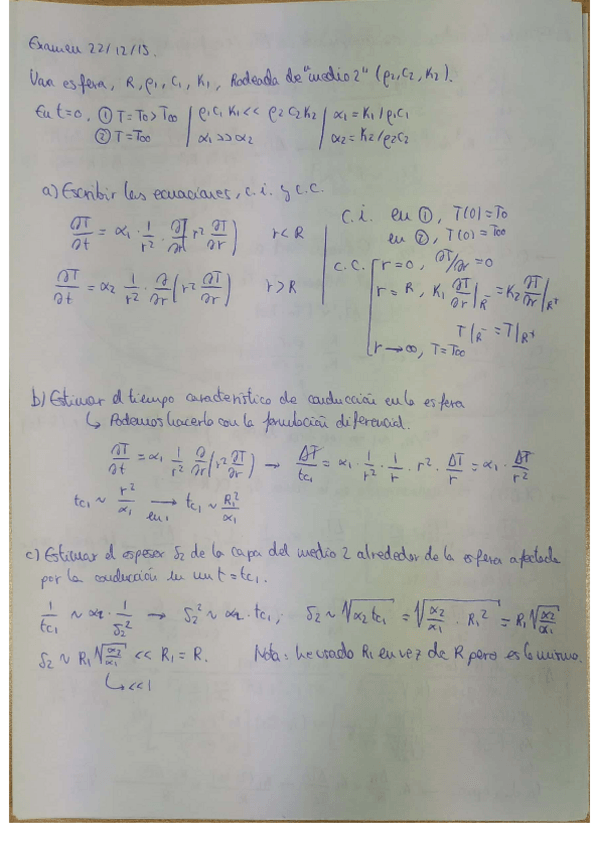 Examen 22/12/15.
Una esfera, R, ρ₁, c₁, K₁, Rodeada de "medio 2" (ρ₂, c₂, K₂).
En t=0, ① T=T₀>T∞ | ρ₁c₁K₁ << ρ₂c₂K₂ | α₁ = K₁/ρ₁c₁
② T=T∞ | α₁ >> α₂ | α₂ = K₂/ρ₂c₂
a) Escribir las ecuaciones, c.i. y c.c.
∂T/∂t = α₁ · 1/r² · ∂/∂r r² ∂T/∂r) r<R
∂T/∂t = α₂ 1/r² · ∂/∂r (r² ∂T/∂r) r>R
c.i. en ①, T(0)=T₀
en ②, T(0)=T∞
c.c. r=0, ∂T/∂r=0
r=R, K₁ ∂T/∂r|R⁻ = K₂ ∂T/∂r|R⁺
T|R⁻ = T|R⁺
r→∞, T=T∞
b) Estimar el tiempo característico de conducción en la esfera
↳ Podemos hacerlo con la formulación diferencial.
∂T/∂t = α₁ 1/r² ∂/∂r (r² ∂T/∂r) → ΔT/tc₁ = α₁ · 1/r² · 1/r · r² · ΔT/r = α₁ · ΔT/r²
tc₁ ~ r²/α₁ → en 1 tc₁ ~ R₁²/α₁
c) Estimar el espesor δ₂ de la capa del medio 2 alrededor de la esfera afectada
por la conducción en un t=tc₁.
1/tc₁ ~ α₂ · 1/δ₂² → δ₂² ~ α₂ · tc₁; δ₂ ~ √(α₂tc₁) = √(α₂/α₁ · R₁²) = R₁√(α₂/α₁)
δ₂ ~ R₁√(α₂/α₁) << R₁ = R. Nota: he usado R₁ en vez de R pero es lo mismo.
↳ <<1